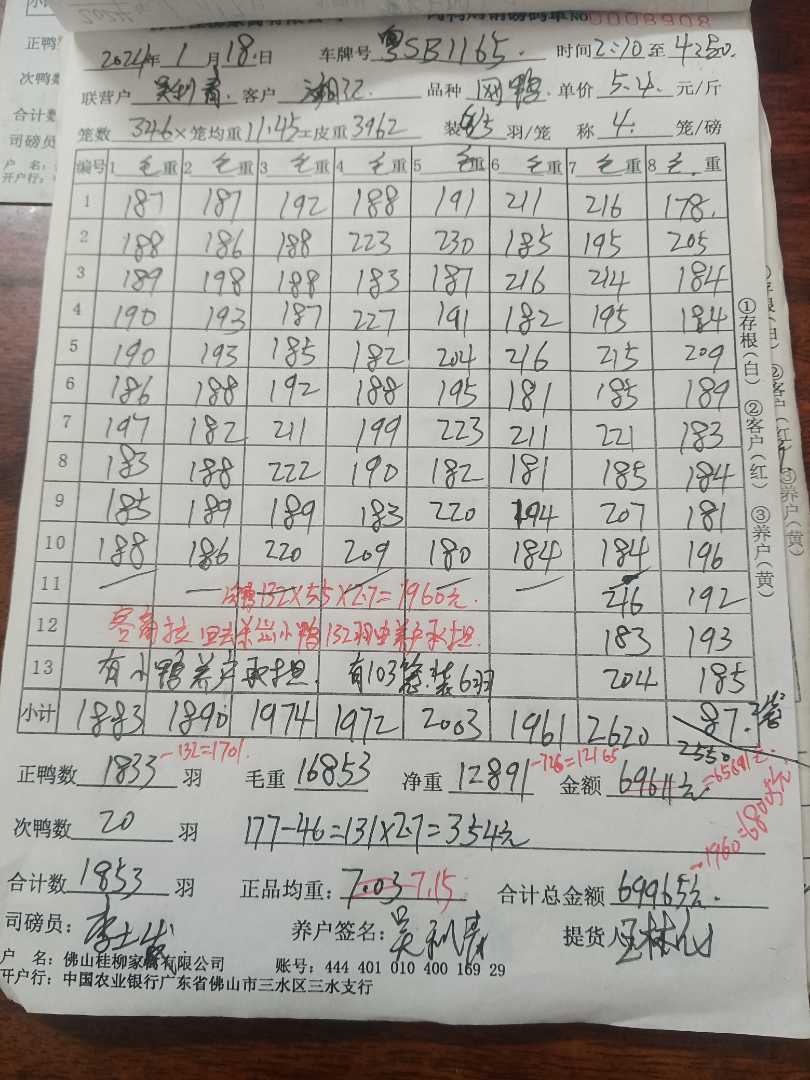 0008908
2024年1月18日 车牌号 粤SB1165. 时间2:10至4:50.
联营户 吴利 客户 品种 网鸭. 单价 5.4. 元/斤
笼数 346×笼均重11.45=皮重3962 装 羽/笼 称 4. 笼/磅
编号 1 毛重 2 毛重 3 毛重 4 毛重 5 毛重 6 毛重 7 毛重 8 毛重
1 187 187 192 188 191 211 216 178.
2 188 186 188 223 230 185 195 205
3 189 198 188 183 187 216 214 184
4 190 193 187 227 191 182 195 184
5 190 193 185 182 204 216 215 209
6 186 188 192 188 195 181 185 189
7 197 182 211 199 223 211 221 183
8 183 188 222 190 182 181 185 184
9 185 189 189 183 220 194 207 181
10 188 186 220 209 180 184 184 196
11 — — — — — — 246 192
鸭132×5.5×2.7=1960元.
12 小鸭132羽由养户承担. 183 193
13 有小鸭养户承担. 有103笼.装6羽 204 185
小计 1883 1890 1974 1972 2003 1961 2620 87.
2550
正鸭数 1833 -132=1701. 羽 毛重 16853 净重 12891 -726=12165 金额 69611元. =65691元.
次鸭数 20 羽 177-46=131×2.7=354元
-1960=68005元
合计数 1853 羽 正品均重: 7.03 7.15 合计总金额 69965元.
司磅员: 李 养户签名: 吴利 提货人 王林
户 名: 佛山桂柳家禽有限公司 账号: 444 401 010 400 169 29
开户行: 中国农业银行广东省佛山市三水区三水支行
①存根(白) ②客户(红) ③养户(黄)
正鸭
次鸭数
合计数
司磅员
开户行:
③养户(黄)